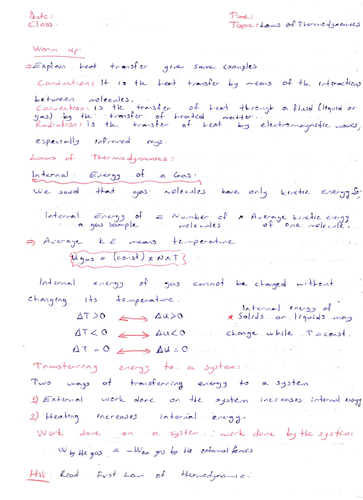 Date: Time:
Class: Topic: Laws of Thermodynamics
Warm up:
⇒ Explain heat transfer give some examples
Conduction: It is the heat transfer by means of the interactions
between molecules.
Convection: is the transfer of heat through a fluid (liquid or
gas) by the transfer of heated matter.
Radiation: is the transfer of heat by electromagnetic waves,
especially infrared rays.
Laws of Thermodynamics:
Internal Energy of a Gas:
We said that gas molecules have only kinetic energy So,
Internal Energy of a gas sample = Number of molecules × Average kinetic energy of one molecule.
⇒ Average K.E means temperature
Ugas = (const) × N × T
Internal energy of gas cannot be changed without
changing its temperature.
Internal energy of
ΔT>0 ⟷ ΔU>0 * Solids or liquids may
ΔT<0 ⟷ ΔU<0 change while T=const.
ΔT=0 ⟷ ΔU=0
Transferring energy to a system:
Two ways of transferring energy to a system
1) External work done on the system increases internal energy
2) Heating increases internal energy.
Work done on a system, work done by the system:
W by the gas = -W on gas by the external forces
HW: Read First Law of thermodynamic.